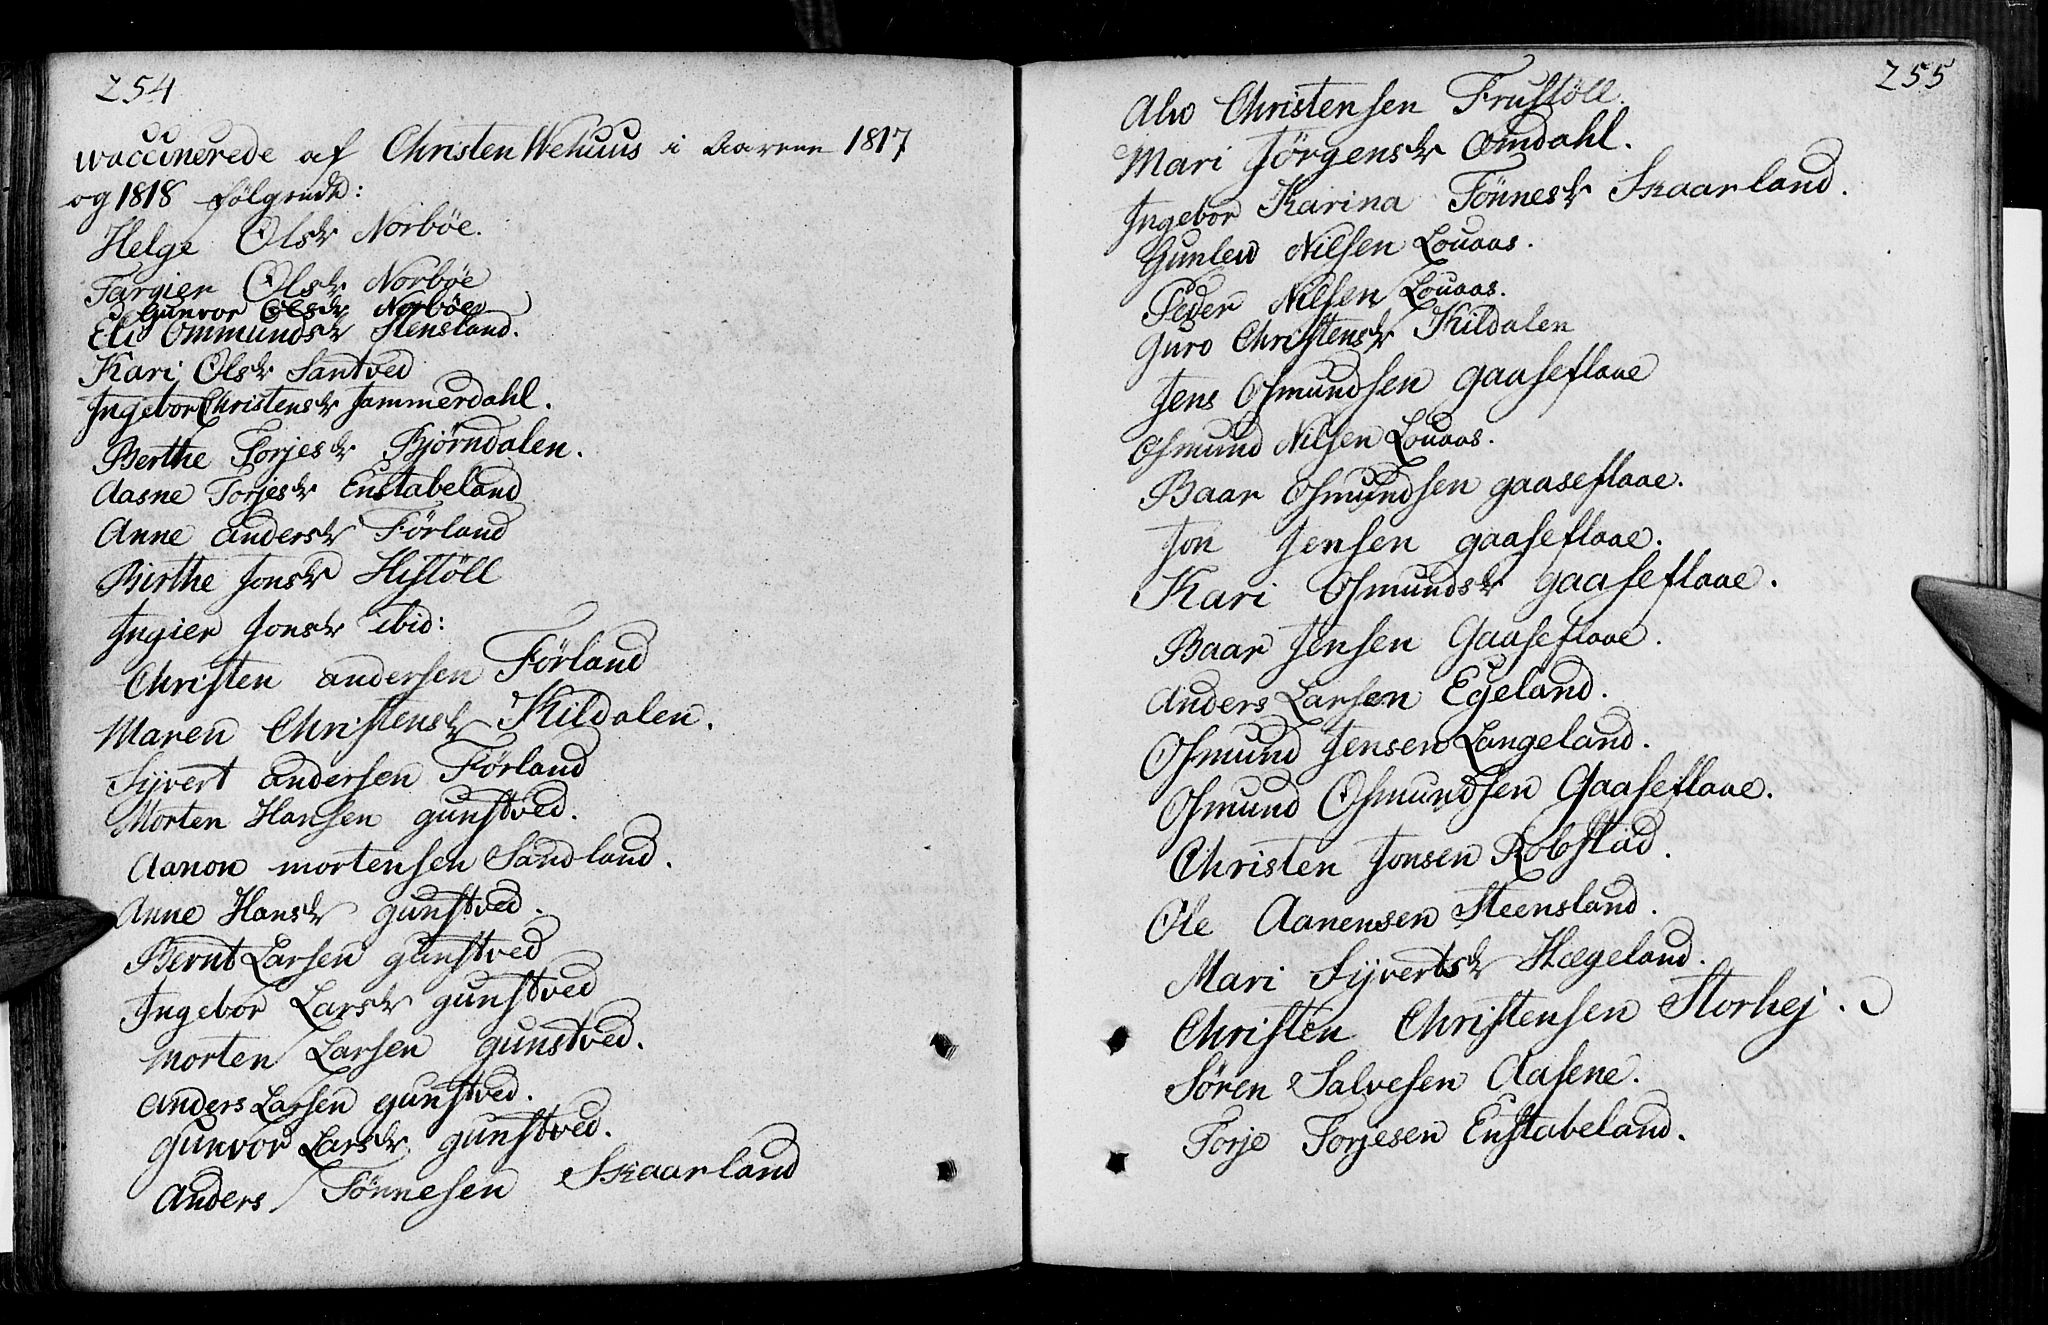 254
waccinerede af Christen Wehuus i Aarene 1817
og 1818 følgende:
Helge Olsdr Norbøe.
Targier Olsdr Norbøe
Gunvor Olsdr Norbøe
Eli Ommundsdr Stensland.
Kari Olsdr Santved
Ingebor Christensdr Jammerdahl.
Berthe Torjesdr Bjørndalen.
Aasne Torjesdr Enstabeland
Anne Andersdr Førland
Birthe Jonsdr Histöll
Ingier Jonsdr ibid:
Christen andersen Førland
Maren Christensdr Kildalen.
Sijvert andersen Førland
Morten Hansen gunstved.
Aanon mortensen Sandland.
Anne Hansdr gunstved.
Bernt Larsen gunstved
Ingebor Larsdr gunstved
Morten Larsen gunstved.
Anders Larsen gunstved.
Gunvor Larsdr gunstved.
Anders Tönnesen Skaarland
255
Alw Christensen Frustöll.
Mari Jörgensdr Omdahl.
Ingebor Karina Tönnesdr Skaarland.
Gunlew Nilsen Louaas.
Peder Nilsen Louaas.
Guro Christensdr Kildalen
Jens Osmundsen gaaseflaae
Osmund Nilsen Louaas.
Baar Osmundsen gaaseflaae.
Jon Jensen gaaseflaae.
Kari Osmundsdr gaaseflaae.
Baar Jensen Gaaseflaae.
Anders Larsen Egeland.
Osmund Jensen Langeland.
Osmund Osmundsen Gaaseflaae.
Christen Jonsen Robstad.
Ole Aanensen Steensland.
Mari Sijvertsdr Hægeland.
Christen Christensen Storhej.
Sören Salvesen Aasene.
Torje Torjesen Enstabeland.